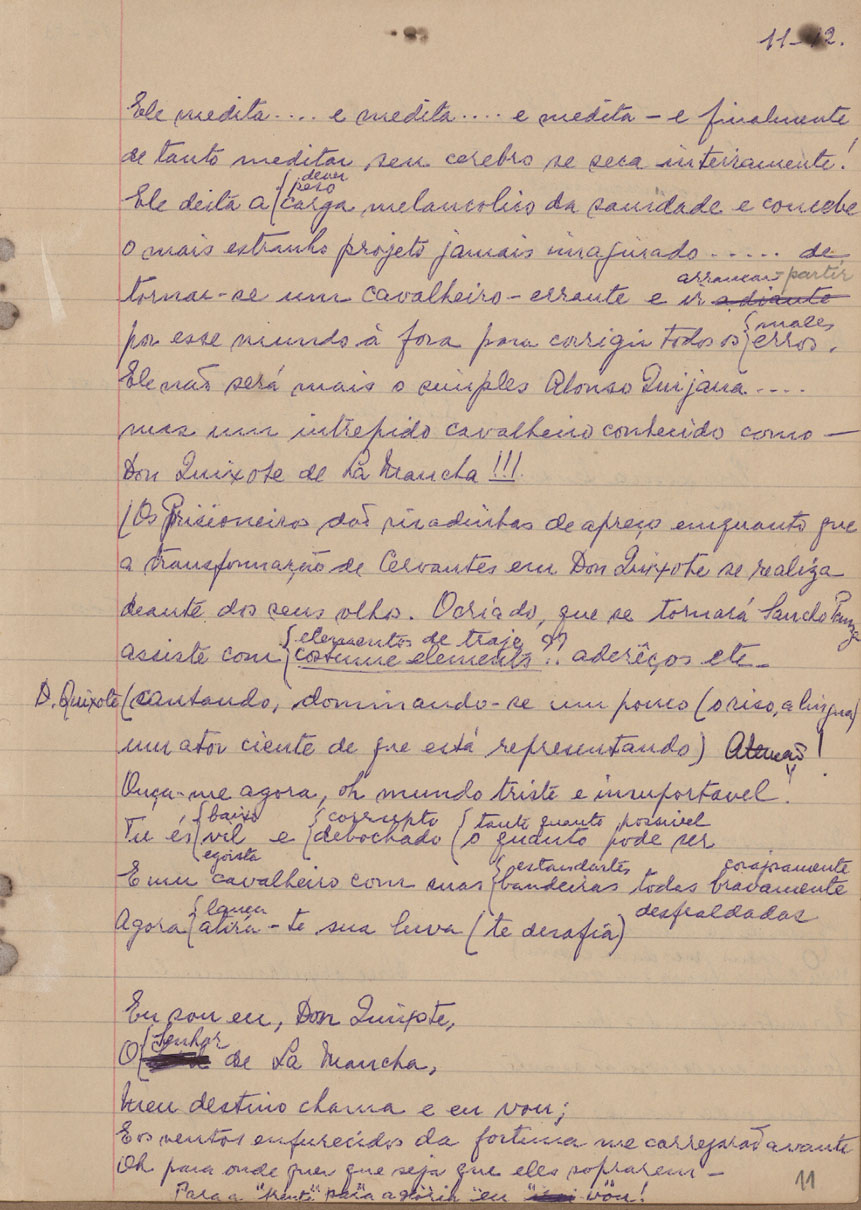 11-12.
Ele medita.... e medita.... e medita - e finalmente
de tanto meditar seu cerebro se seca inteiramente!
dever
peso
Ele deita a {carga melancolico da sanidade e concebe
o mais estranho projeto jamais imaginado ..... de
arrancar - partir
tornar-se um cavalheiro-errante e ir adiante
males
por esse mundo à fora para corrigir todos os {erros.
Ele não será mais o simples Alonso Quijana ....
mas um intrepido cavalheiro conhecido como -
Don Quixote de La Mancha!!!
(Os Prisioneiros dão risadinhas de apreço emquanto que
a transformação de Cervantes em Don Quixote se realiza
deante dos seus olhos. O criado, que se tornará Sancho Panza
{elementos de traje
assiste com {costume elements ?? aderêços etc-
D. Quixote (cantando, dominando-se um pouco (o riso, a lingua)
um ator ciente de que está representando) Atenção!
Ouça-me agora, oh mundo triste e insuportavel!
{baixo {corrupto {tanto quanto possivel
Tu és {vil e {debochado {o quanto pode ser
egoista
{estandartes corajosamente
E um cavalheiro com suas {bandeiras todas bravamente
desfraldadas
{lança
Agora {atira-te sua luva (te desafia)
Eu sou eu, Don Quixote,
{Senhor
O de La Mancha,
Meu destino chama e eu vou;
E os ventos enfurecidos da fortuna me carregarão avante
Oh para onde quer que seja que eles soprarem -
Para a "frente" para a glória eu vou!
11